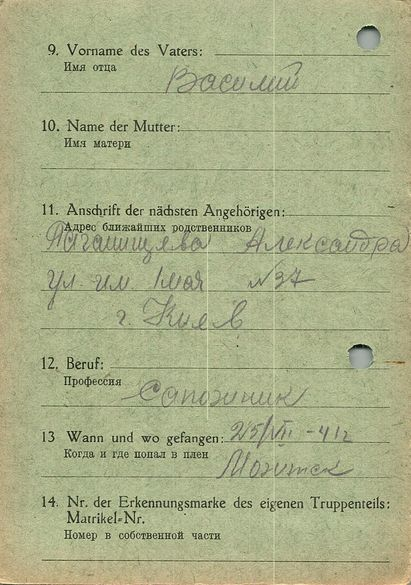 9. Vorname des Vaters:
Имя отца
Василий
10. Name der Mutter:
Имя матери
11. Anschrift der nächsten Angehörigen:
Адрес ближайших родственников
Александра
ул. им. 1 мая №37
г. Киев
12. Beruf:
Профессия
Сапожник
13 Wann und wo gefangen:
Когда и где попал в плен
14. Nr. der Erkennungsmarke des eigenen Truppenteils:
Matrikel=Nr.
Номер в собственной части